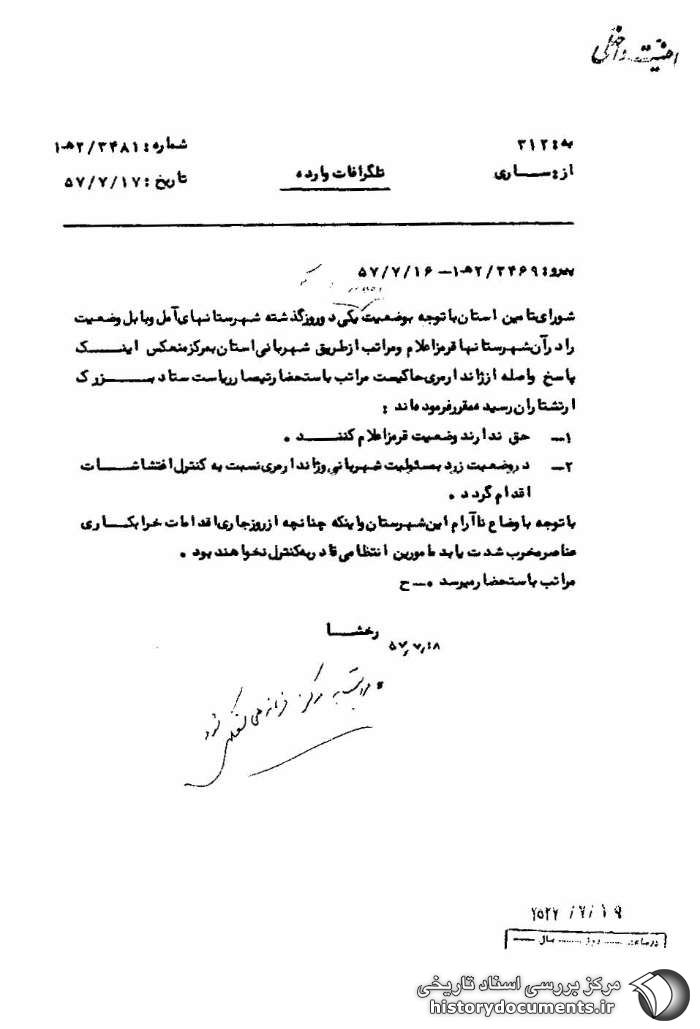 امنیت داخلی
به : ۳۱۲
شماره : ۲/۳۴۸۱هـ۱
از : ســـاری
تلگرافات وارده
تاریخ : ۵۷/۷/۱۷
پیرو : ۲/۳۴۶۹هـ۱ – ۵۷/۷/۱۶
شورای تامین استان با توجه بوضعیت یکی دو روز گذشته شهرستانهای آمل و بابل وضعیت
را در آن شهرستانها قرمز اعلام و مراتب از طریق شهربانی استان بمرکز منعکس اینـــک
پاسخ واصله از ژاندارمری حاکیست مراتب باستحضار تیمسار ریاست ستاد بـــزرگ
ارتشتاران رسیده مقرر فرموده‌اند :
۱– حق ندارند وضعیت قرمز اعلام کننـــد .
۲– در وضعیت زرد بمسئولیت شهربانی و ژاندارمری نسبت به کنترل اغتشاشـــات
اقدام گردد .
با توجه باوضاع ناآرام این شهرستان و اینکه چنانچه از روز جاری اقدامات خرابکـــاری
عناصر مخرب شدت یابد مامورین انتظامی قادر به کنترل نخواهند بود .
مراتب باستحضار میرسد . – ح
رخشـــا
۵۷/۷/۱۸
مراتب به مرکز فرماندهی منعکس شود
۲۵۳۷ /۷/ ۱۹
در ساعت ...... روز ...... سال
مرکز بررسی اسناد تاریخی
historydocuments.ir